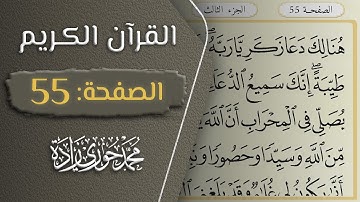 القرآن الكريم
الصفحة: 55
محمد حوري زاده
الصفحة 55
الجزء الثالث
هُنَالِكَ دَعَا زَكَرِيَّا رَبَّهُ
طَيِّبَةً إِنَّكَ سَمِيعُ الدُّعَاءِ
يُصَلِّي فِي الْمِحْرَابِ أَنَّ اللَّهَ
مِّنَ اللَّهِ وَسَيِّدًا وَحَصُورًا وَنَبِيًّا
أَنَّى يَكُونُ لِي غُلَامٌ وَقَدْ بَلَغَنِيَ